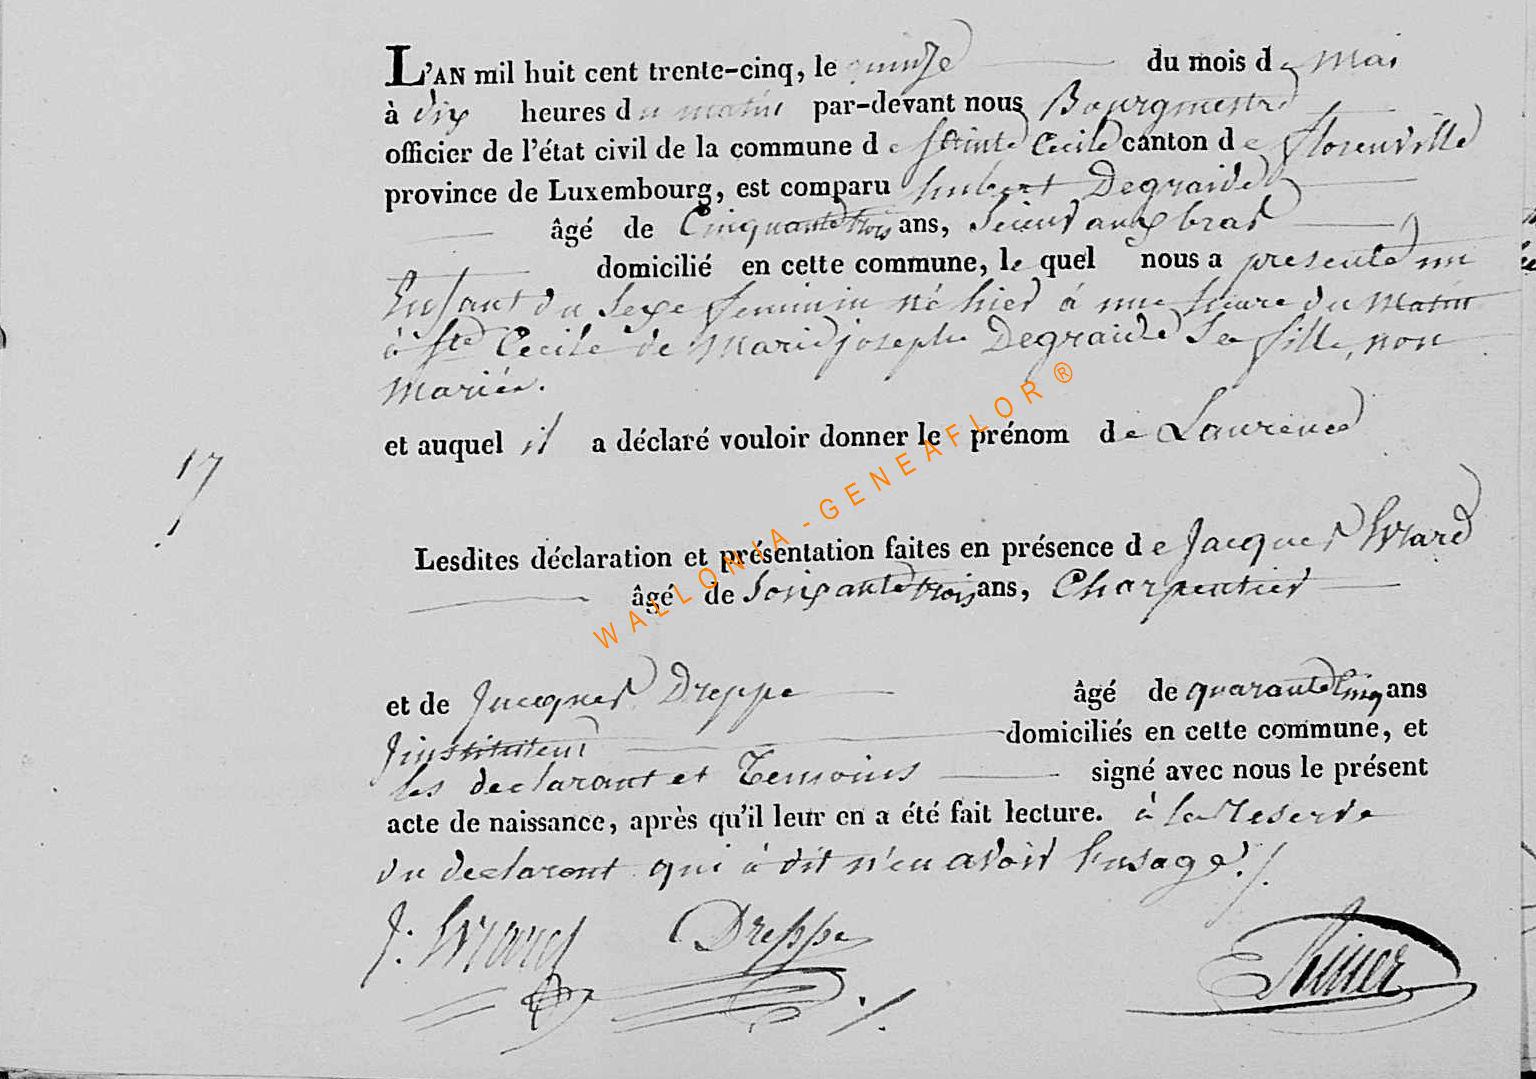 L'AN mil huit cent trente-cinq, le quinze du mois de Mai
à dix heures du matin par-devant nous Bourgmestre
officier de l'état civil de la commune de Sainte Cecile canton de florenville
province de Luxembourg, est comparu hubert Degraide
âgé de Cinquante trois ans, Sieur aux bras
domicilié en cette commune, le quel nous a presenté un
Enfant du Sexe feminin né hier à une heure du Matin
à Ste Cecile de Marie joseph Degraide Sa fille, non
Mariée.
et auquel il a déclaré vouloir donner le prénom de Laurence
17
Lesdites déclaration et présentation faites en présence de Jacques Evrard
âgé de Soixante trois ans, Charpentier
et de Jacques Dreppe âgé de quarante Cinq ans
Jinstituteur domiciliés en cette commune, et
les declarant et Temoins signé avec nous le présent
acte de naissance, après qu'il leur en a été fait lecture. à la Reserve
du declarant qui à dit n'en avoir l'usage ./.
J: Evrard Dreppe
WALLONIA-GENEAFLOR®